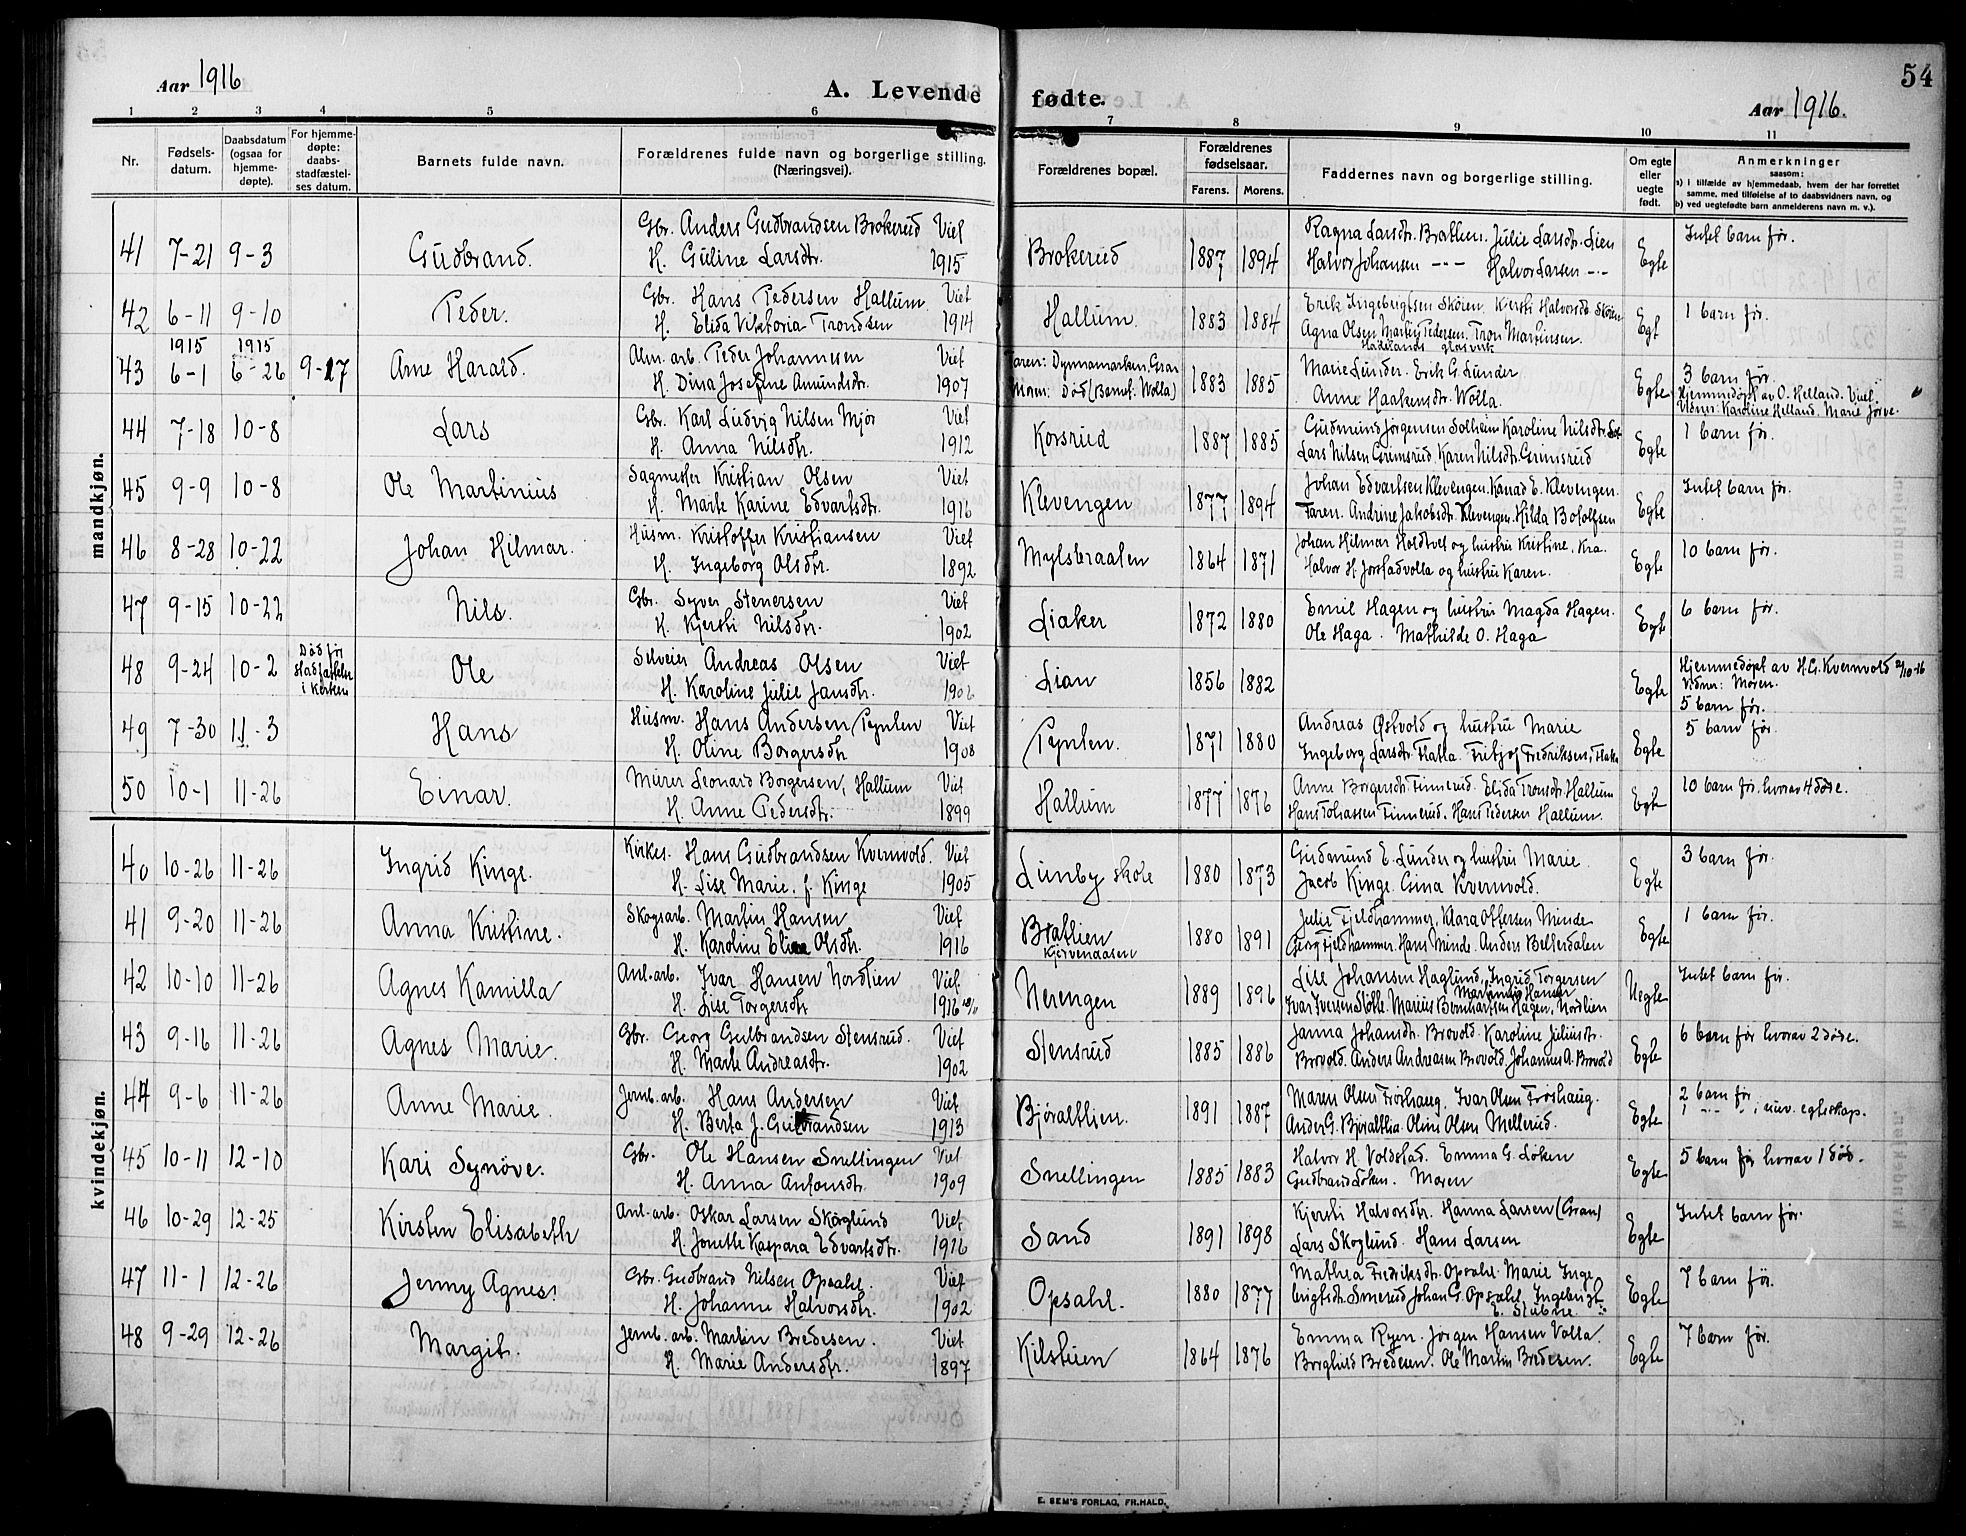 54
Aar 1916
A. Levende fødte.
Aar 1916.
1 2 3 4 5 6 7 8 9 10 11
Nr.
Fødsels-
datum.
Daabsdatum
(ogsaa for
hjemme-
døpte).
For hjemme-
døpte:
daabs-
stadfæstel-
ses datum.
Barnets fulde navn.
Forældrenes fulde navn og borgerlige stilling.
(Næringsvei).
Forældrenes bopæl.
Forældrenes
fødselsaar.
Farens. Morens.
Faddernes navn og borgerlige stilling.
Om egte
eller
uegte
født.
Anmerkninger
saasom:
a) i tilfælde av hjemmedaab, hvem der har forrettet
samme, med tilføielse af to daabsvidners navn, og
b) ved uegtefødte barn anmelderens navn m. v.).
mandkjøn.
41 7-21 9-3 Gudbrand. Gbr. Anders Gudbrandsen Brokerud Viet Brokerud 1887 1894 Ragna Larsdtr. Brattien. Julie Larsdtr. Lien Egte Intet barn før.
H. Guline Larsdtr. 1915 Halvor Johansen -"- Halvor Larsen -"-
42 6-11 9-10 Peder. Gbr. Hans Pedersen Hallum. Viet Hallum. 1883 1884 Erik Ingebrigtsen Skoien. Kersti Halvorsd. Skoien Egt 1 barn før.
H. Elida Viktoria Trondsen 1914 Agna Olsen Martin Pedersen. Tron Martinsen.
Hadelands glasverk
1915 1915
43 6-1 6-26 9-17 Arne Harald. Alm. arb. Peder Johannesen Viet Faren: Dynnamarken, Gran 1883 1885 Marie Lunder. Erik G. Lunder Egte 3 barn før.
H. Dina Josefine Amundsdtr. 1907 Moren: Død (Benef. Wolla) Anne Haakensdtr. Wolla. Hjemmedøpt av O. Helland. Viel.
Vidner: Karoline Helland. Marie
44 7-18 10-8 Lars Gbr. Karl Ludvig Nilsen Mjør Viet Korsrud 1887 1885 Gudmund Jørgensen Solheim Karoline Nilsdtr. Egte 1 barn før.
H. Anna Nilsdtr. 1912 Lars Nilsen Grimsrud. Karen Nilsdtr. Grimsrud
45 9-9 10-8 Ole Martinius Sagmester Kristian Olsen Viet Klevengen 1877 1894 Johan Edvartsen Klevengen. Konrad E. Klevengen. Egte Intet barn før.
H. Marte Karine Edvartsdtr. 1916 Faren. Andrine Jakobsdtr. Klevengen. Hilda Botolfsen
46 8-28 10-22 Johan Hilmar. Husm. Kristoffer Kristiansen Viet Mylsbraaten 1864 1871 Johan Hilmar Holdtvet og hustru Kristine. Kra. Egte 10 barn før.
H. Ingeborg Olsdtr. 1892 Halvor H. Jorstadvolla og hustru Karen.
47 9-15 10-22 Nils. Gbr. Syver Stenersen Viet Liaker 1872 1880 Emil Hagen og hustru Magda Hagen. Egte 6 barn før.
H. Kjersti Nilsdtr. 1902 Ole Haga. Mathilde O. Haga
48 9-24 10-2 Død før
stadfæstelse
i kirken Ole Selveier Andreas Olsen Viet Lian 1856 1882 Egte Hjemmedøpt av H.G. Kvernvold 2/10-16
H. Karoline Julie Jansdtr. 1906 Vidner: Moren.
5 barn før.
49 7-30 11-3 Hans Husm. Hans Andersen Pynten Viet Pynten. 1871 1880 Andreas Østvold og hustru Marie Egte 5 barn før.
H. Oline Borgersdtr. 1908 Ingeborg Larsdtr. Flatla. Fritjof Fredriksen, Flatla
50 10-1 11-26 Einar. Murer Leonard Borgersen, Hallum Viet Hallum 1877 1876 Anne Borgersdtr. Finnerud. Elida Tronsdtr. Hallum Egt 10 barn før. hvorav 4 døde.
H. Anne Pedersdtr. 1899 Hans Tohassen Finnerud. Hans Pedersen Hallum.
kvindekjøn.
40 10-26 11-26 Ingrid Kinge. Kirkes. Hans Gudbrandsen Kvernvold. Viet Lunby skole 1880 1873 Gudmund E. Lunder og hustru Marie. Egte 3 barn før.
H. Lise Marie. f. Kinge 1905 Jacob Kinge. Gina Kvernvold.
41 9-20 11-26 Anna Kristine. Skogsarb. Martin Hansen Viet Bratlien 1880 1891 Julie Fjeldhammer, Klara Ottersen Minde Egte 1 barn før.
H. Karoline Eline Olsdtr. 1916 Kjørvenaasen Georg Fjeldhammer. Hans Minde. Anders Bellerdalen
42 10-10 11-26 Agnes Kamilla Anl.-arb. Ivar Hansen Nordlien Viet. Nerengen 1889 1896 Lise Johansen Haglund, Ingrid Torgersen Uegte Intet barn før.
H. Lise Torgersdtr 1916 Ivar Iversen Slotte. Marius Bernhartsen Hagen, Martinus Hansen Nordlien
43 9-16 11-26 Agnes Marie. Gbr. Georg Gulbrandsen Stensrud. Viet Stensrud 1885 1886 Janna Johansdtr. Brovold. Karoline Juliusdtr. Egte 6 barn før hvorav 2 døde.
H. Marte Andreasdtr. 1902 Brovold. Anders Andreasen Brovold. Johannes A. Brovold
44 9-6 11-26 Anne Marie. Jernb. arb. Hans Andersen Viet Bjøraltlien. 1891 1887 Maren Olsen Froshaug, Ivar Olsen Froshaug. Egte 2 barn før
H. Berta J. Gulbrandsen 1913 Ander G. Bjøraltlia. Oline Olsen Mellerud. 1 -"- -"- i nuv. egteskap.
45 10-11 12-10 Kari Synøve. Gbr. Ole Hansen Snellingen Viet Snellingen 1885 1883 Halvor H. Voldstad. Emma G. Løken Egte 5 barn før hvorav 1 død.
H. Anna Antonsdtr. 1909 Gudbrand Løken. Moren
46 10-29 12-25 Kirsten Elisabeth Anl.-arb. Oskar Larsen Skoglund Viet Sand 1891 1898 Kjersti Halvorsdtr. Hanna Larsen (Gran) Egte Intet barn før.
H. Jonette Kaspara Edvartsdtr. 1916 Lars Skoglund. Hans Larsen
47 11-1 12-26 Jenny Agnes. Gbr. Gudbrand Nilsen Opsahl. Viet Opsahl. 1880 1877 Mathea Fredriksdtr. Opsahl. Marie Inge Egte 7 barn før.
H. Johanne Halvorsdtr. 1902 brigtsdtr. Smerud Johan G. Opsahl Ingebrigt
E. Stubne
48 9-29 12-26 Margit. Jernb. arb. Martin Bredesen. Viet Kilstuen 1864 1876 Emma Ryen. Jørgen Hansen Volla. Egte 7 barn før.
H. Marie Andersdtr. 1897 Borghild Bredesen. Ole Martin Bredesen.
E. SEM'S FORLAG, FR.HALD.